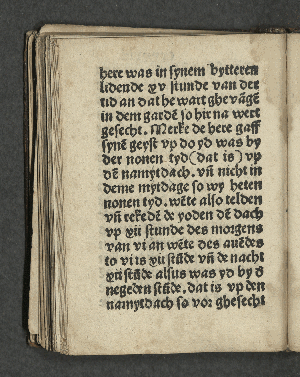 here was in synem bytteren
lidende xv stunde van der
tid an dat he wart ghevāgē
in dem gardē so hir na wert
gesecht. Merke de here gaff
synē geyst vp do yd was by
der nonen tyd (dat is) vp
dē namytdach. vn̄ nicht in
deme mytdage so wy heten
nonen tyd. wēte also telden
vn̄ rekedē de yoden dē dach
vp xii stunde des morgens
van vi an wēte des auēdes
to vi is xii stūde vn̄ de nacht
xii stūde alsus was yd by d̄
negeden stūde. dat is vp den
namytdach so vor ghesecht